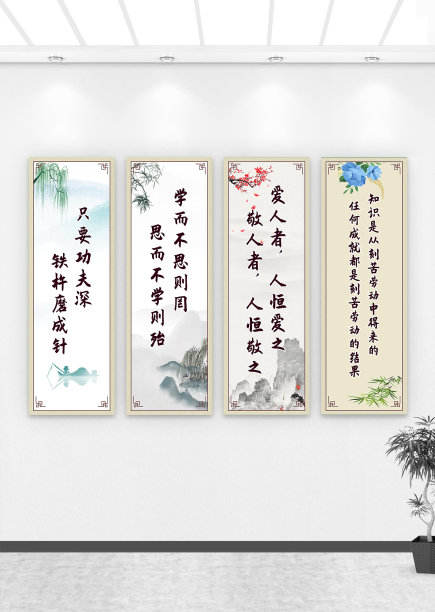 只要功夫深
铁杵磨成针
学而不思则罔
思而不学则殆
爱人者，人恒爱之
敬人者，人恒敬之
知识是从刻苦劳动中得来的
任何成就都是刻苦劳动的结果